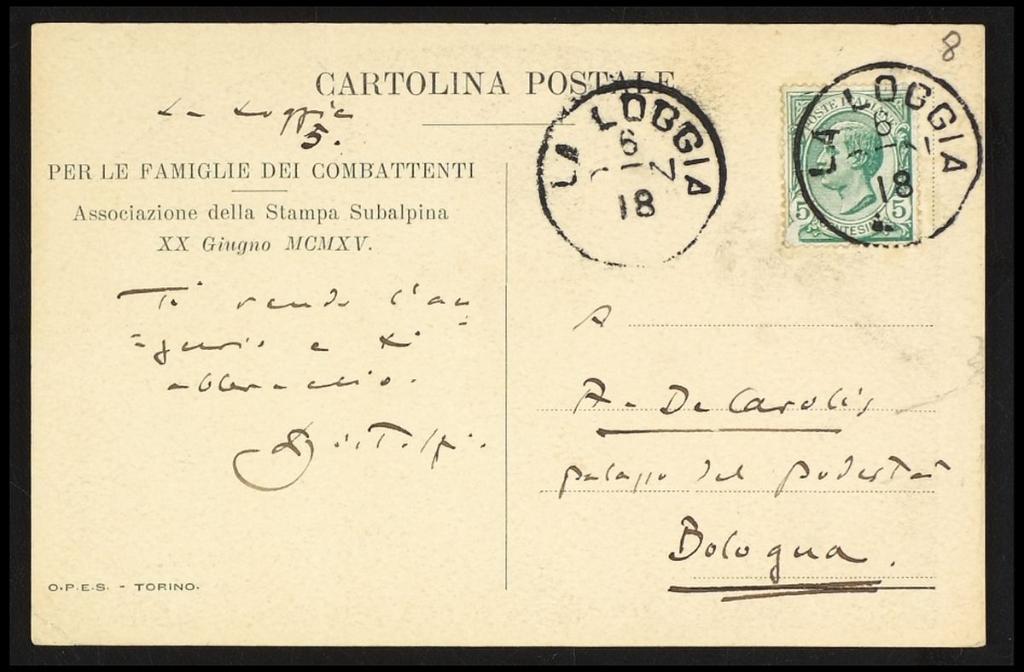 8
CARTOLINA POSTALE
La Loggia
5.
PER LE FAMIGLIE DEI COMBATTENTI
Associazione della Stampa Subalpina
XX Giugno MCMXV.
Ti rendo l'au
=gurio e ti
abbraccio.
O.P.E.S. - TORINO.
LA LOGGIA
18
POSTE ITALIANE
5 CENTESIMI 5
LA LOGGIA
18
A
A. De Carolis
palazzo del podestà
Bologna.